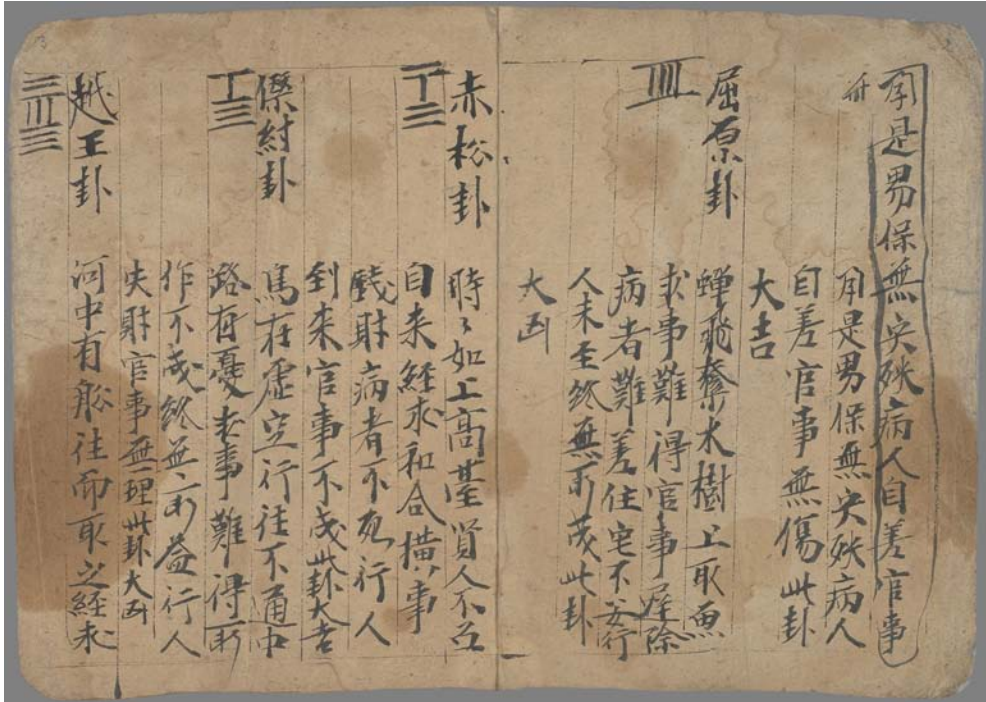 用是男保無失殃病人自差官事
用是男保無失殃病人
自差官事無傷此卦
大吉
屈原卦
蟬飛騫木樹上取魚
求事難得官事遲除
病者難差住宅不安行
人未至終無所成此卦
大凶
赤松卦
時々如上高臺賢人不召
自来經求和合橫事
錢財病者不死行人
到来官事不成此卦大吉
傑紂卦
馬在虛空行往不通中
路有憂求事難得所
作不成終無所益行人
失財官事無理此卦大凶
越王卦
河中有船往而取之經求